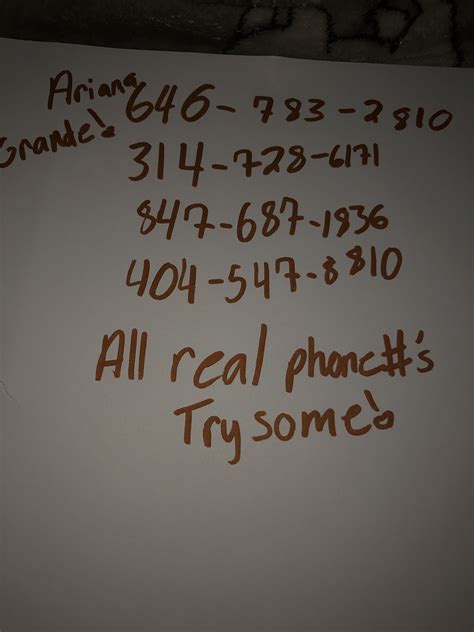 Ariana
Grande's
646-783-2810
314-728-6171
847-687-1936
404-547-8810
All real phone#'s
Try some's